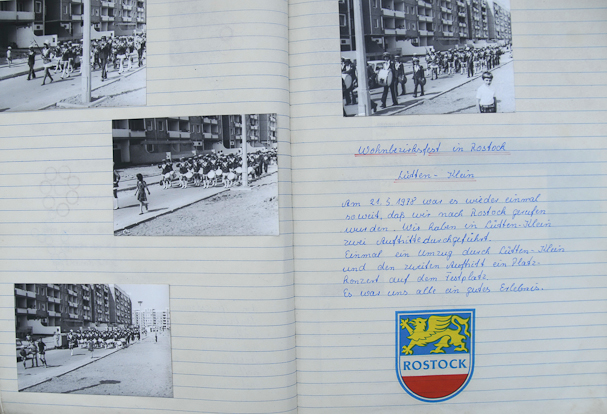 Wohnbezirksfest in Rostock
Lütten-Klein
Am 21.5.1978 war es wieder einmal
soweit, daß wir nach Rostock gerufen
wurden. Wir haben in Lütten-Klein
zwei Auftritte durchgeführt.
Einmal ein Umzug durch Lütten-Klein
und den zweiten Auftritt ein Platz-
konzert auf dem Festplatz.
Es war uns alle ein gutes Erlebnis.
ROSTOCK